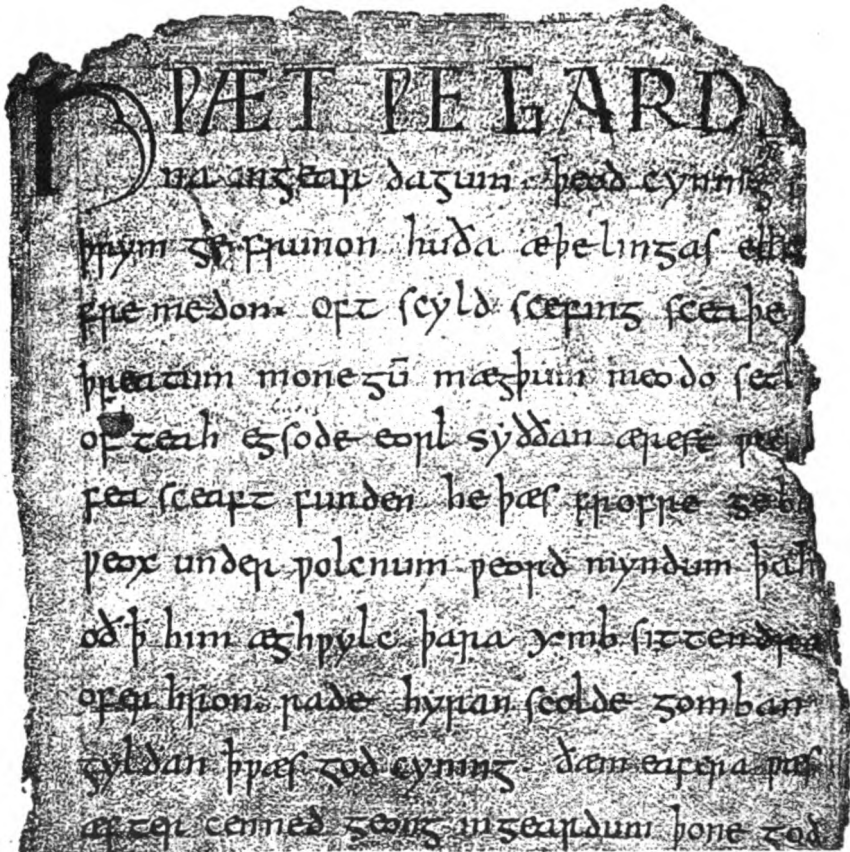 HǷÆT ǷE GARD
na ingear dagum. þeod cyning
þrym ge frunon huða æþelingas elle
fremedon. oft scyld scefing sceaþe
þreatum monegū mægþum meodo setl
of teah egsode eorl syððan ærest ƿea
fea sceaft funden he þæs frofre geb
ƿeox under ƿolcnum ƿeorð myndum þah
oð ꝥ him æghƿylc þara ymb sittendra
ofer hron rade hyran scolde gomban
gyldan ꝥ ƿæs god cyning. ðæm eafera ƿæs
æfter cenned geong ingeardum þone god